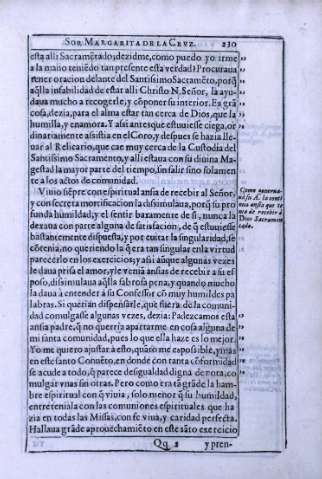 SOR MARGARITA DE LA CRVZ. 230
està alli Sacramẽtado; dezidme, como puedo yo irme
a la mano teniẽdo tan presente esta verdad? Procuraua
tener oracion delante del Santissimo Sacramẽto, porq̃
aq̃lla infabilidad de estar alli Christo N. Señor, la ayu-
daua mucho a recogerle, y cõponer su interior. Es grã
cosa, dezia, para el alma estar tan cerca de Dios, que la
humilla, y enamora. Y assi antes que estuuiesse ciega, or
dinariamente assistia en el Coro, y despues se hazia lle-
uar al Relicario, que cae muy cerca de la Custodia del
Santissimo Sacramento, y alli estaua con su diuina Ma-
gestad la mayor parte del tiempo, sin salir sino solamen
te a los actos de comunidad.
Viuio siẽpre con espiritual ansia de recibir al Señor,
y con secreta mortificacion la dissimulaua, porq̃ su pro
funda humildad, y el sentir baxamente de si, nunca la
dexaua con parte alguna de satisfacion, de q̃ estuuiesse
bastantemente dispuesta, y por euitar la singularidad, se
cõtenia, no queriendo la q̃ era tan singular en la virtud
parecerlo en los exercicios; y assi aũque algunas vezes
le daua prisa el amor, y le veniã ansias de recibir a su es
poso, disimulaua aq̃lla sabrosa pena, y quando mucho
la daua à entender à su Confessor cõ muy humildes pa
labras. Si querian dispensarle, que fuera de la comuni-
dad comulgasse algunas vezes, dezia: Padezcamos esta
ansia padre, q̃ no querria apartarme en cosa alguna de
mi santa comunidad, pues lo que ella haze es lo mejor.
Yo me quiero ajustar a esto, quãto me es posible, y mas
en este santo Conuẽto, en donde con tanta cõformidad
se acude a todo, q̃ parece desigualdad digna de nota, co
mulgar vnas sin otras. Pero como era tã grãde la ham-
bre espiritual con q̃ viuia, solo menor q̃ su humildad,
entreteniala con las comuniones espirituales que ha-
zia en todas las Missas, con fe viua, y caridad perfecta.
Hallaua grãde aprouechamiẽto en este sãto exercicio
Como gouerna-
la conti
nua ansia que te
nia de recibir à
Dios Sacramen
tado.
Qq 2 y pren-